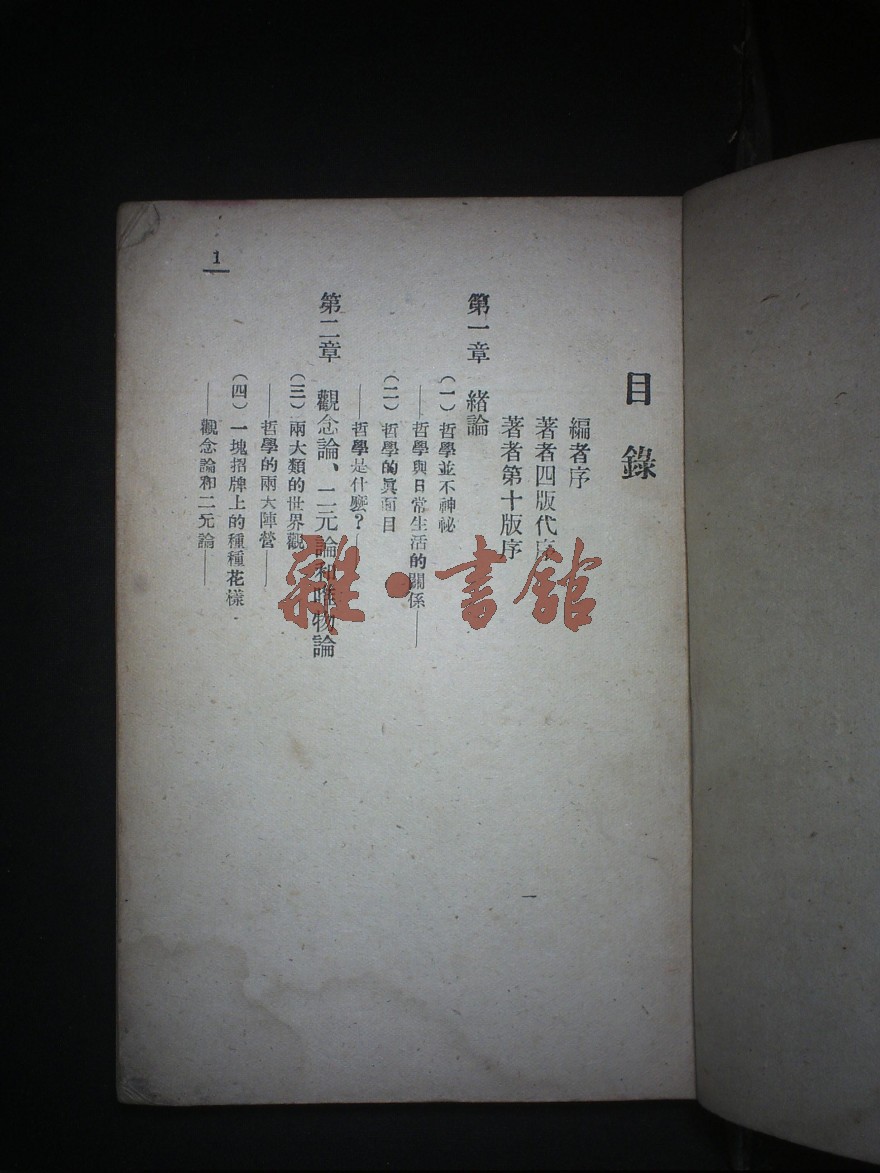 目錄
編者序
著者四版代序
著者第十版序
第一章 緒論
(一) 哲學並不神祕
——哲學與日常生活的關係——
(二) 哲學的眞面目
——哲學是什麼?——
第二章 觀念論、二元論和唯物論
(三) 兩大類的世界觀
——哲學的兩大陣營——
(四) 一塊招牌上的種種花樣
——觀念論和二元論——
1
雜·書館